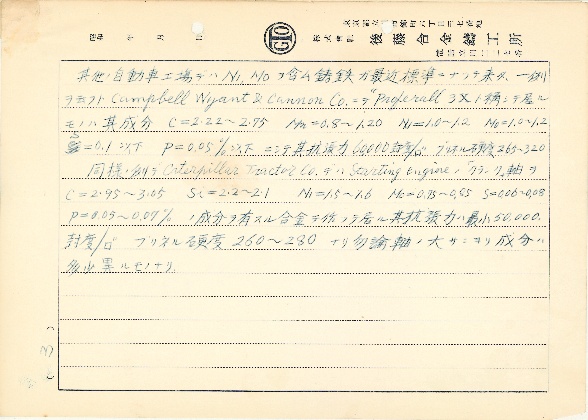 昭和 年 月 日
株式會社 後藤合金鑄工所
其他ノ自動車工場デハ Ni, Mo ヲ含ム鋳鉄ガ最近標準トナッテ来タ、一例
ヲモッテ Campbell Wyant & Cannon Co. デ "Proferall 3X ト稱シテ居ル
モノハ其成分 C=2.22~2.95 Mn=0.8~1.20 Ni=1.0~1.2 Mo=1.0~1.2
S=0.1以下 P=0.05%以下 ニシテ其抗張力 60000封度/□" ブリネル硬度 265~320
同様ノ例デ Caterpillar Tractor Co. デハ Starting Engine ノクランク軸ヲ
C=2.95~3.05 Si=2.2~2.1 Ni=1.5~1.6 Mo=0.75~0.65 S=0.06~0.08
P=0.05~0.07% ノ成分ヲ有スル合金デ作ッテ居ル其抗張力ハ最小50,000.
封度/□" ブリネル硬度 260~280 ナリ勿論軸ノ大サニヨリ成分ハ
多少異ルモノナリ.
(3)